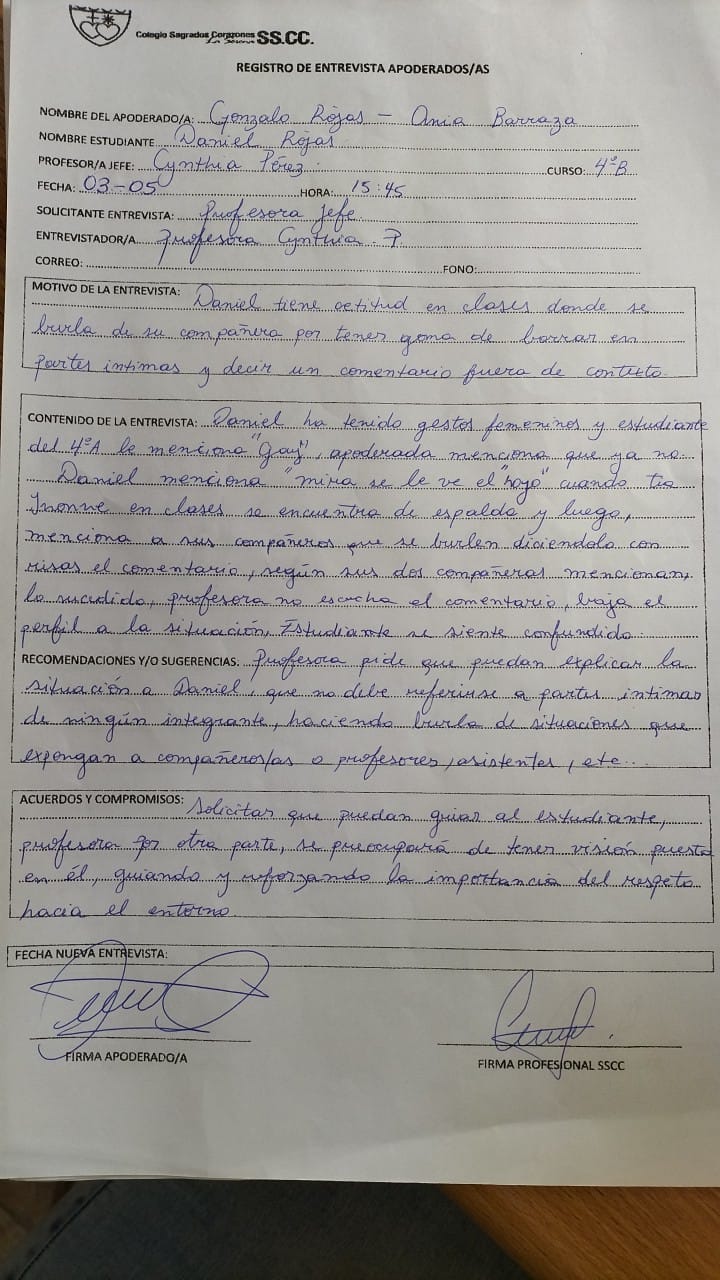 Colegio Sagrados Corazones
La Serena
SS.CC.
REGISTRO DE ENTREVISTA APODERADOS/AS
NOMBRE DEL APODERADO/A: Gonzalo Rojas – Ania Barraza
NOMBRE ESTUDIANTE Daniel Rojas
PROFESOR/A JEFE: Cynthia Pérez CURSO: 4ºB
FECHA: 03-05 HORA: 15:45
SOLICITANTE ENTREVISTA: Profesora Jefe
ENTREVISTADOR/A Profesora Cynthia P.
CORREO: FONO:
MOTIVO DE LA ENTREVISTA: Daniel tiene actitud en clases donde se
burla de su compañera por tener goma de borrar en
partes intimas y decir un comentario fuera de contexto.
CONTENIDO DE LA ENTREVISTA: Daniel ha tenido gestos femeninos y estudiante
del 4ºA le menciona "Gay", apoderada menciona que ya no.
Daniel menciona "mira se le ve el "hoyo" cuando tía
Ivonne en clases se encuentra de espalda y luego,
menciona a sus compañeros que se burlen diciendolo con
risas el comentario, según sus dos compañeras mencionan,
lo sucedido, profesora no escucha el comentario, baja el
perfil a la situación. Estudiante se siente confundido.
RECOMENDACIONES Y/O SUGERENCIAS: Profesora pide que puedan explicar la
situación a Daniel, que no debe referirse a partes intimas
de ningún integrante, haciendo burla de situaciones que
expongan a compañeros/as o profesores, asistentes, etc...
ACUERDOS Y COMPROMISOS: Solicitar que puedan guiar al estudiante,
profesora por otra parte, se preocupará de tener visión puesta
en él, guiando y reforzando la importancia del respeto
hacia el entorno.
FECHA NUEVA ENTREVISTA:
FIRMA APODERADO/A
FIRMA PROFESIONAL SSCC